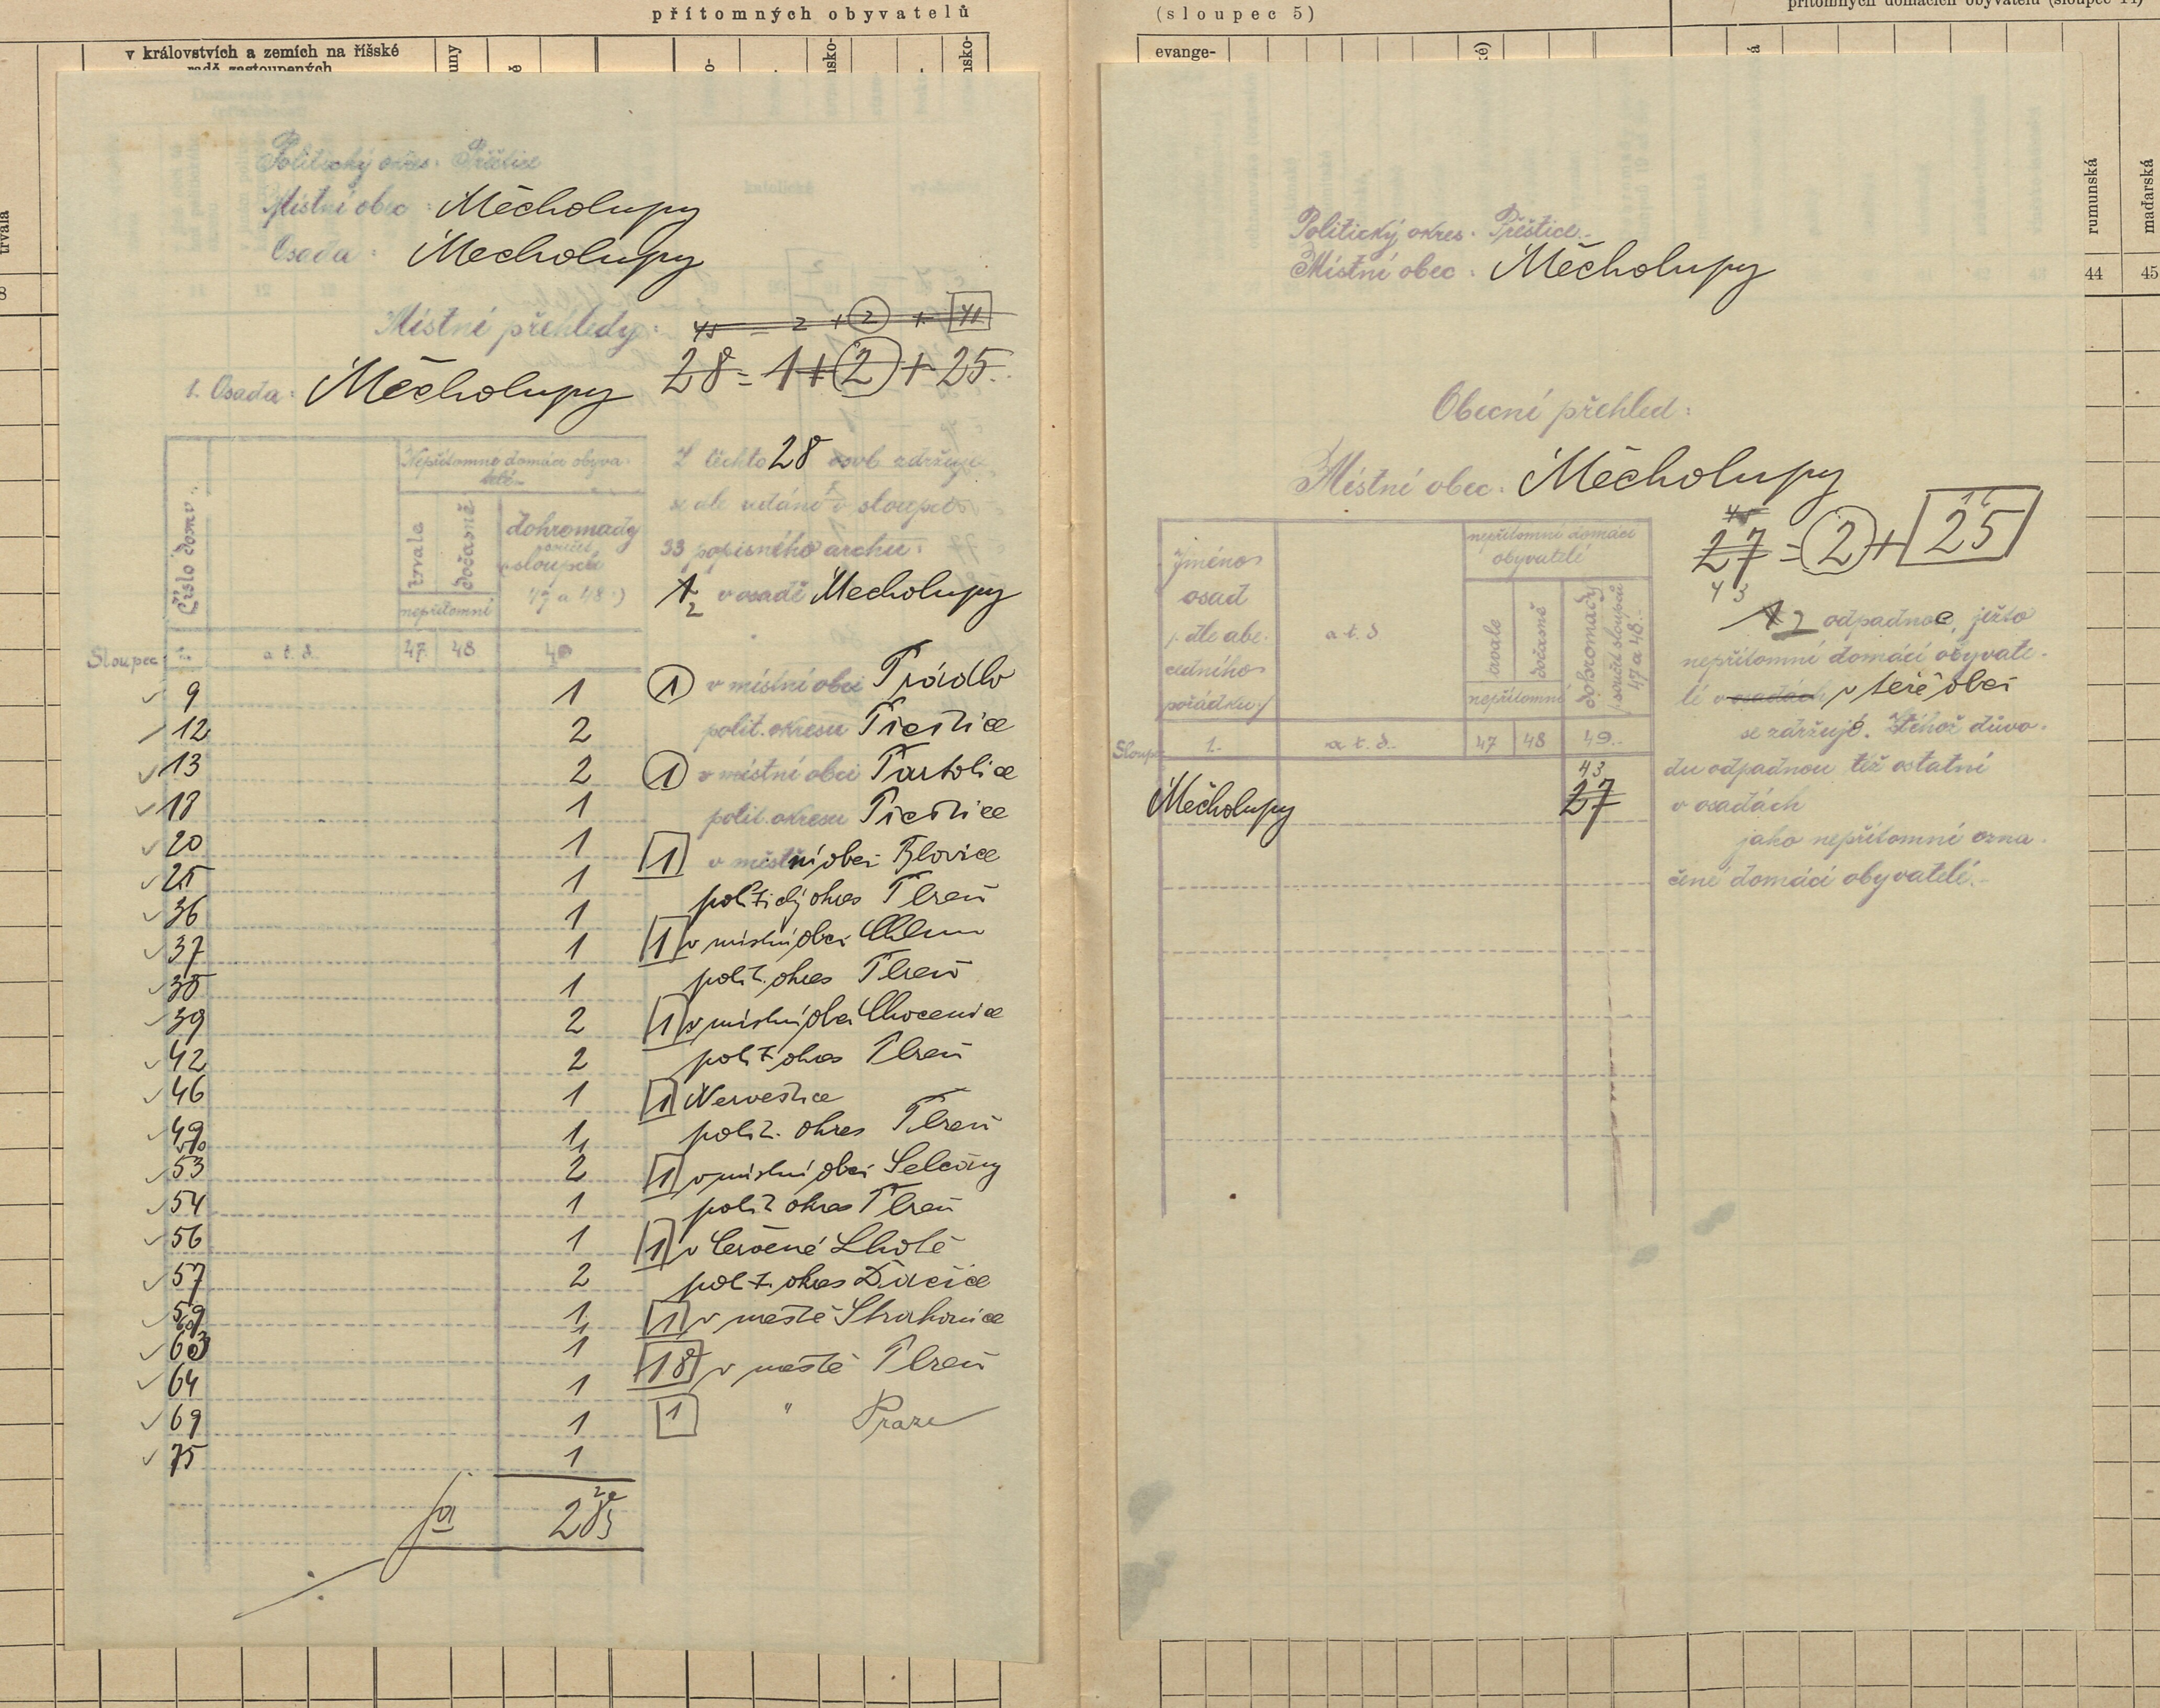 přítomných obyvatelů
v královstvích a zemích na říšské
radě zastoupených
trvala
8
Politický okres: Přeštice
Místní obec: Měcholupy
Osada: Mecholupy
Místní přehledy:
45 = 2 + 2 + 41
28 = 1 + 2 + 25
1. Osada: Měcholupy
Číslo domu
Nepřítomno domácí obyva-
telé
trvale
dočasně
dohromady
součet
sloupců
47 a 48)
nepřítomni
Sloupec 1. a t. d. 47. 48 49
9 1
12 2
13 2
18 1
20 1
25 1
36 1
37 1
38 1
39 2
42 2
46 1
49 1
50 1
53 2
54 1
56 1
57 2
59 1
60 1
63 1
64 1
69 1
75 1
28
Z těchto 28 osob zdržuje
se dle udání v sloupci
33 popisného archu:
1 2 v osadě Mecholupy
1 v místní obci Prádlo
polit. okresu Přeštice
1 v místní obci Partolice
polit. okresu Přeštice
1 v místní obci Blovice
politický okres Plzeň
1 v místní obci Chlum
polit. okres Plzeň
1 v místní obci Chocenice
polit okres Plzeň
1 Nezvestice
polit. okres Plzeň
1 v místní obci Selcany
polit okres Plzeň
1 v Červené Lhotě
polit. okres Dačice
1 v městě Strakonice
18 v městě Plzeň
1 " Praze
(sloupec 5)
přítomných domácích obyvatelů (sloupec 14)
evange-
rumunská
maďarská
44 45
Politický okres: Přeštice.
Místní obec: Měcholupy
Obecní přehled:
Místní obec: Měcholupy
45
27 = 2 + 25
43
Jméno
osad
dle abe-
cedního
pořádku
a t. d
nepřítomní domácí
obyvatelé
trvale
dočasně
dohromady
součet sloupců
47 a 48.
nepřítomné
Sloupec 1. a t. d. 47 48 49.
43
Měcholupy 27
2 odpadnou, ježto
nepřítomní domácí obyvate-
lé v osadách v téže obci
se zdržují. Z téhož důvo-
du odpadnou též ostatní
v osadách
jako nepřítomní ozna-
čené domácí obyvatelé.